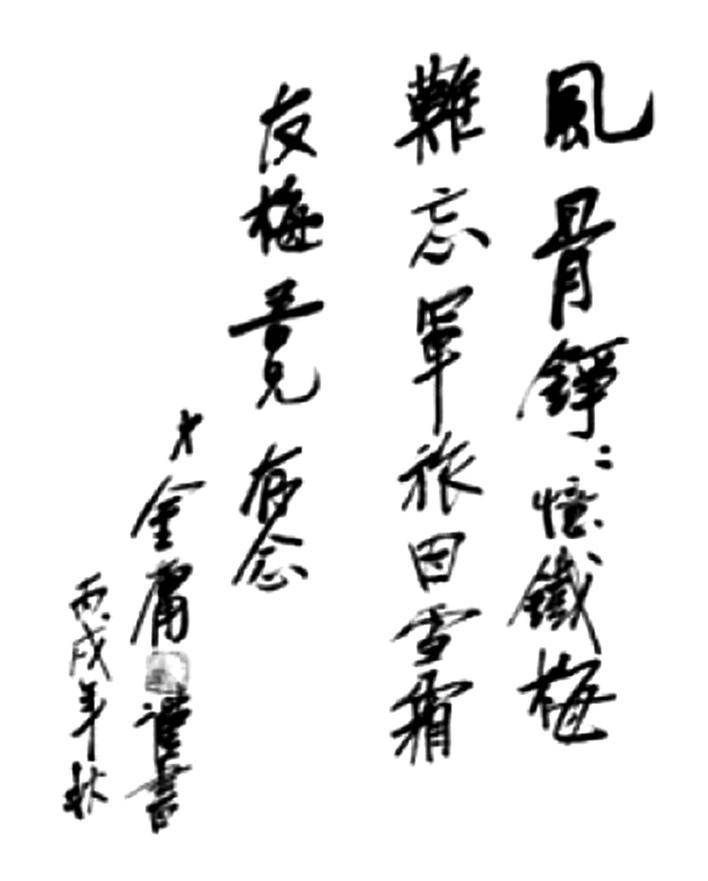 風骨錚錚憶鐵梅
難忘軍旅田雪霜
友梅竟存念
金庸謹書
丙戌年秋